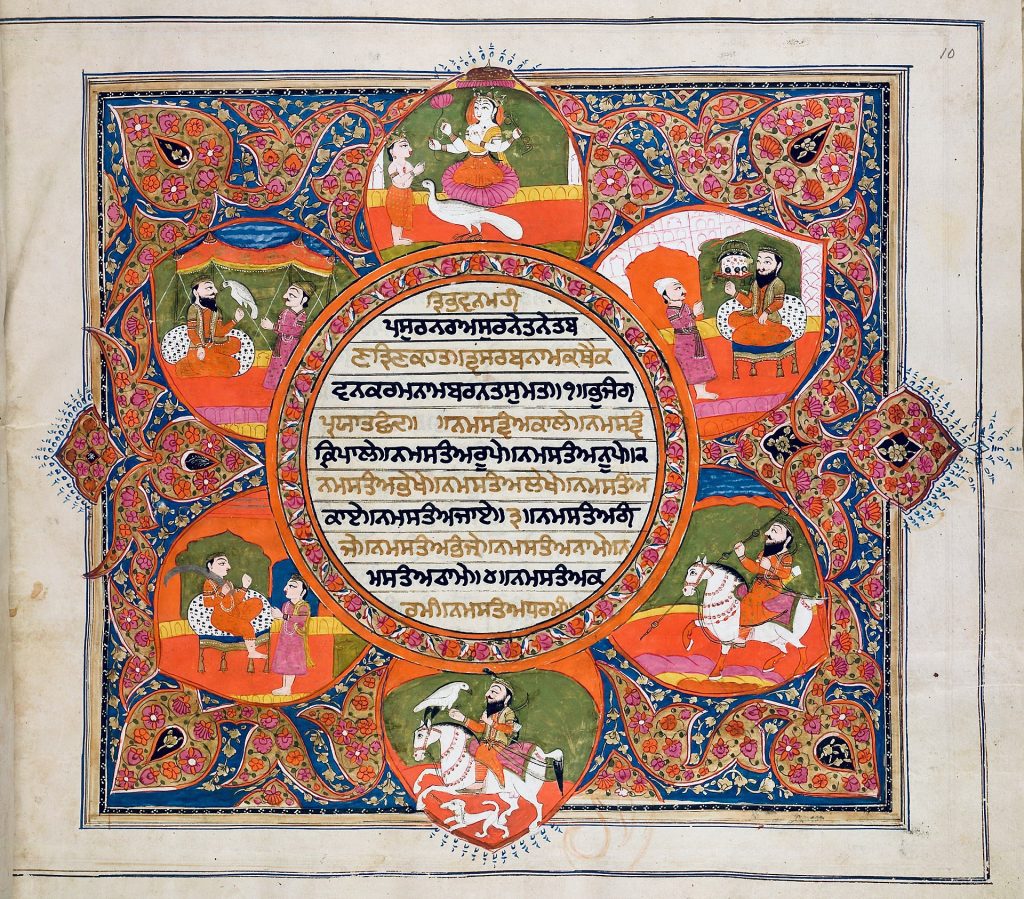 10
ਤ੍ਰਿਭਵਨਮਹੀ
ਪਸੁਰਨਰਅਸੁਰਨੇਤਨੇਤਬ
ਣਤ੍ਰਿਣਕਹਤ॥ਤ੍ਵਸਰਬਨਾਮਕਥੈਕ
ਵਨਕਰਮਨਾਮਬਰਨਤਸੁਮਤ॥੧॥ਭੁਜੰਗ
ਪ੍ਰਯਾਤਛੰਦ॥ ॥ਨਮਸਤ੍ਵੰਅਕਾਲੇ॥ਨਮਸਤ੍ਵੰ
ਕ੍ਰਿਪਾਲੇ॥ਨਮਸਤੰਅਰੂਪੇ॥ਨਮਸਤੰਅਨੂਪੇ॥੨
ਨਮਸਤੰਅਭੇਖੇ॥ਨਮਸਤੰਅਲੇਖੇ॥ਨਮਸਤੰਅ
ਕਾਏ॥ਨਮਸਤੰਅਜਾਏ॥੩॥ਨਮਸਤੰਅਗੰ
ਜੇ॥ਨਮਸਤੰਅਭੰਜੇ॥ਨਮਸਤੰਅਨਾਮੇ॥ਨ
ਮਸਤੰਅਠਾਮੇ॥੪॥ਨਮਸਤੰਅਕ
ਰਮੰ॥ਨਮਸਤੰਅਧਰਮੰ॥